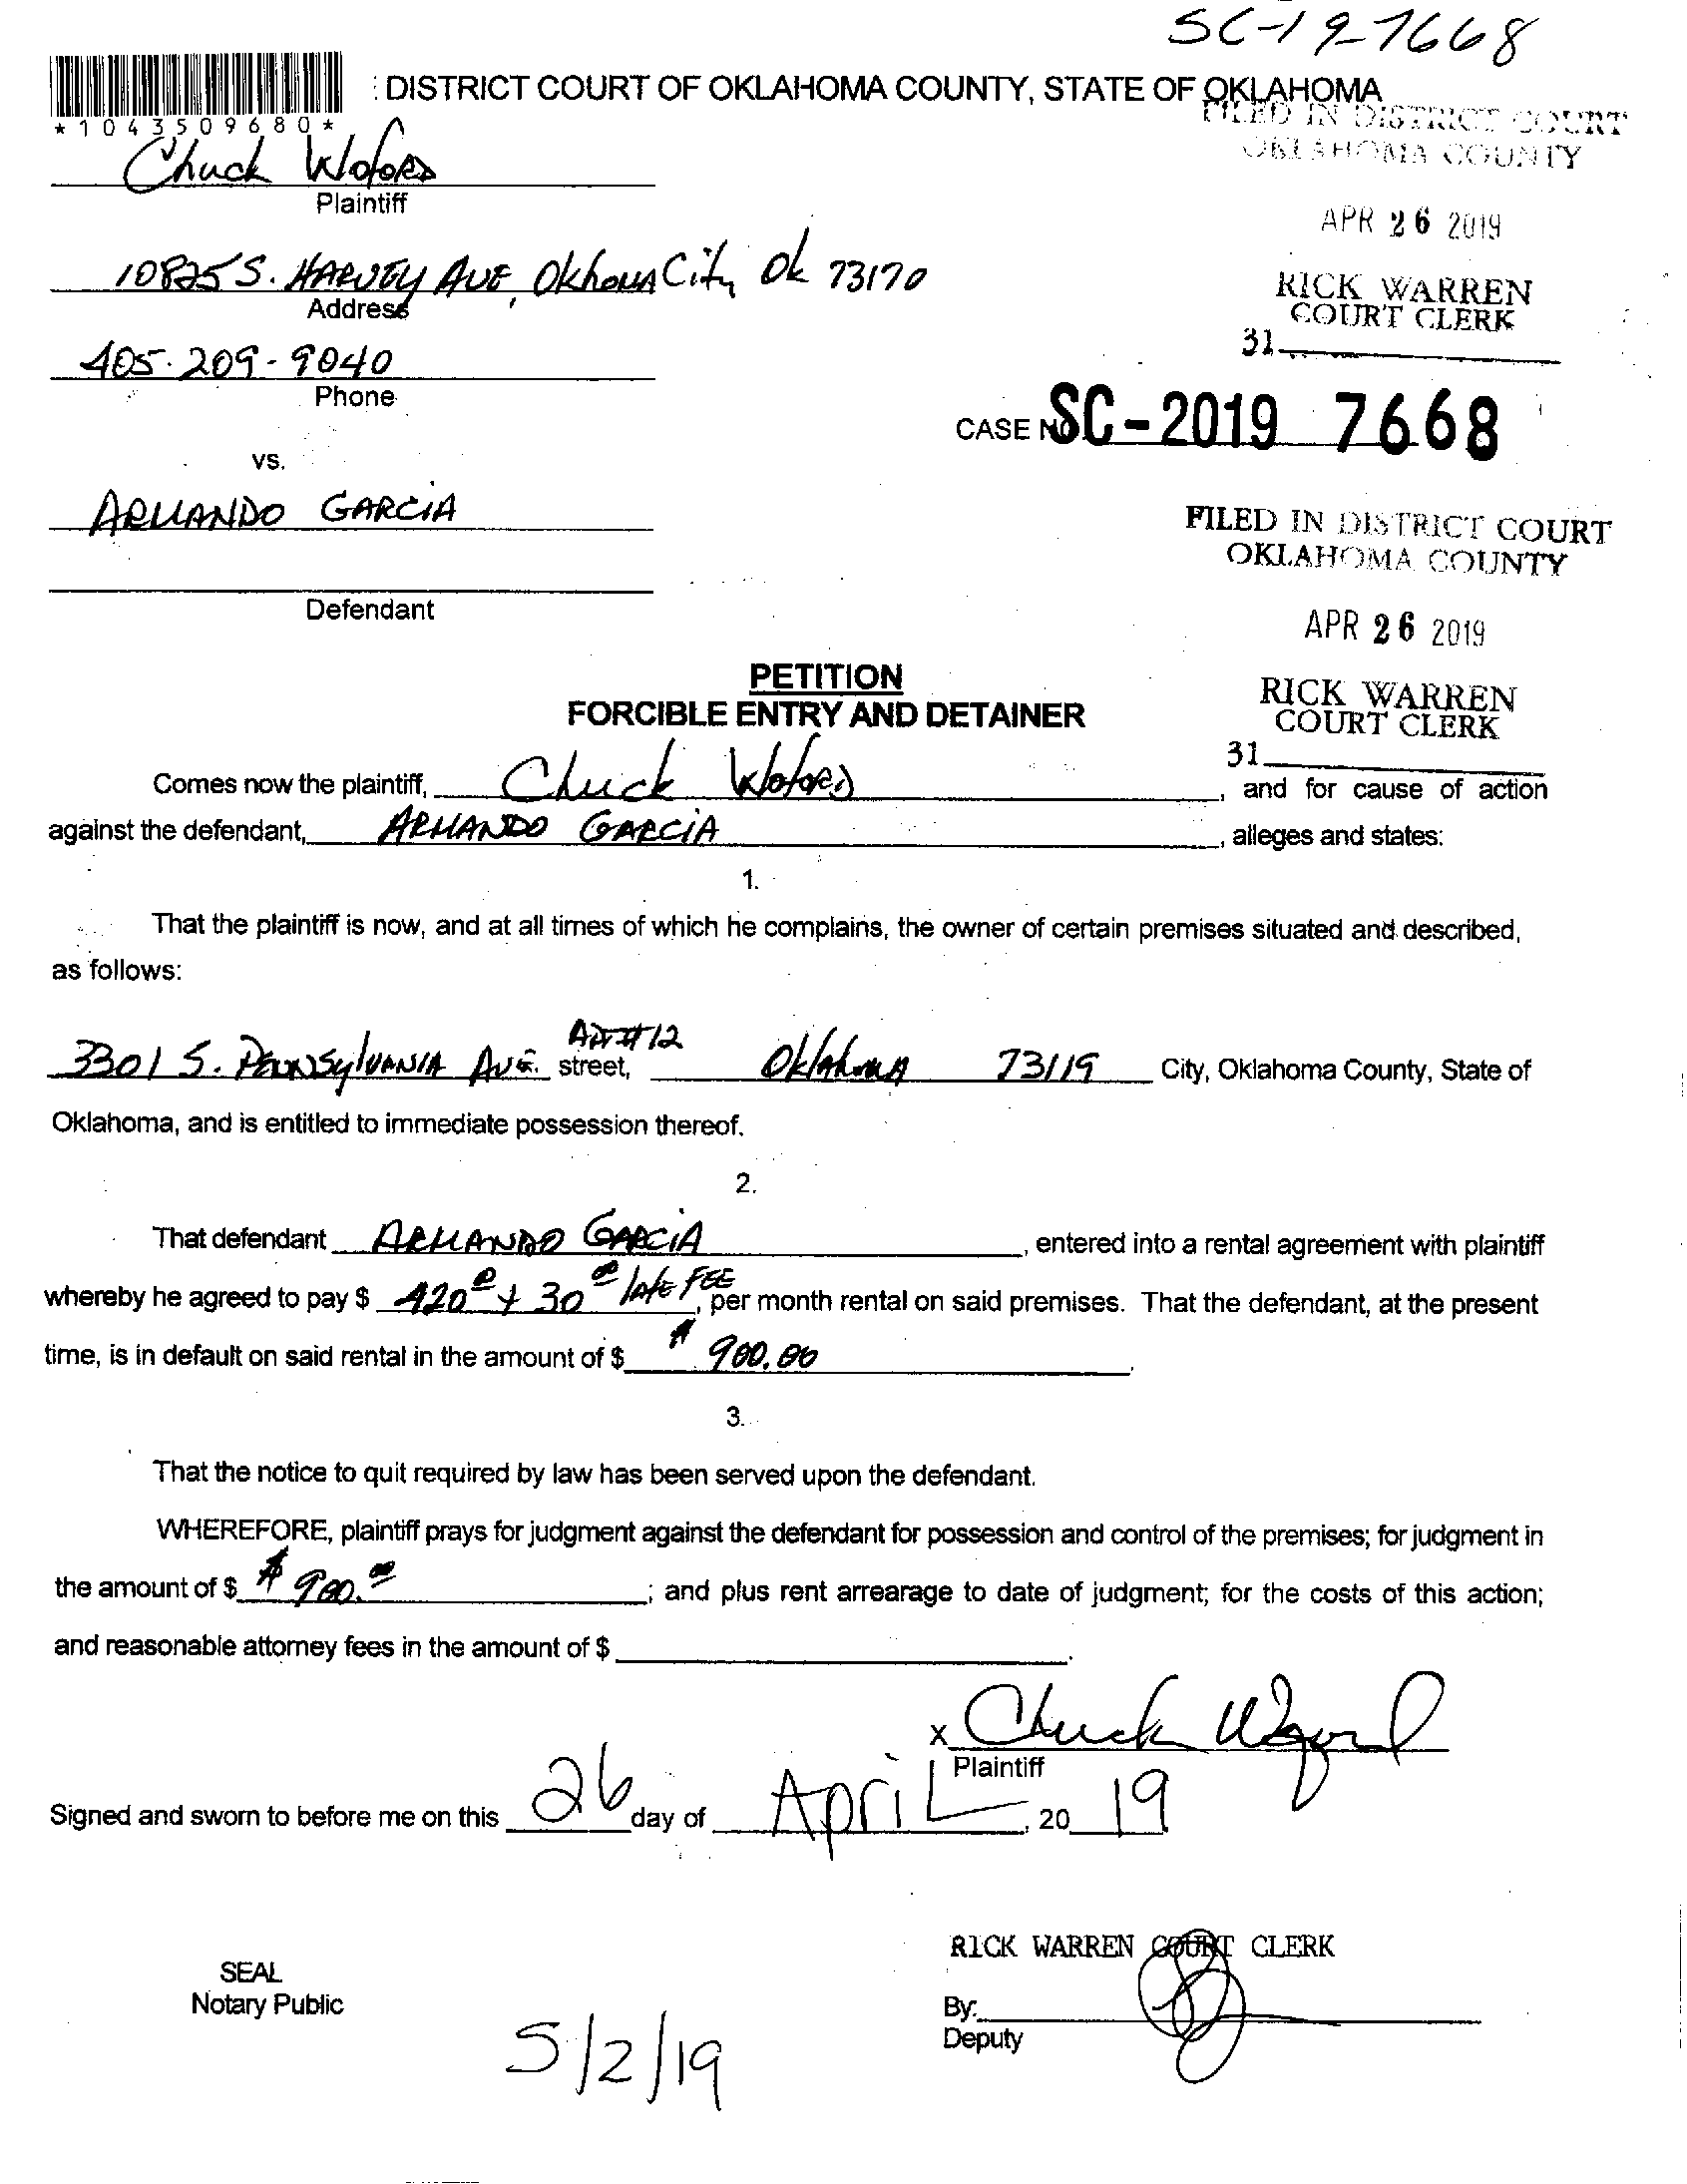 SC-19-7668
DISTRICT COURT OF OKLAHOMA COUNTY, STATE OF OKLAHOMA
*1043509680*
FILED IN DISTRICT COURT
OKLAHOMA COUNTY
Chuck Woford
Plaintiff
APR 26 2019
10825 S. HARVEY AVE, Okhoma City Ok 73170
Address
RICK WARREN
COURT CLERK
31
405-209-9040
Phone
CASE NO. SC-2019 7668
vs.
ARMANDO GARCIA
FILED IN DISTRICT COURT
OKLAHOMA COUNTY
Defendant
APR 26 2019
PETITION
FORCIBLE ENTRY AND DETAINER
RICK WARREN
COURT CLERK
31
Comes now the plaintiff, Chuck Woford, and for cause of action
against the defendant, ARMANDO GARCIA, alleges and states:
1.
That the plaintiff is now, and at all times of which he complains, the owner of certain premises situated and described,
as follows:
3301 S. Pennsylvania Ave. Apt #12 street, Oklahoma 73119 City, Oklahoma County, State of
Oklahoma, and is entitled to immediate possession thereof.
2.
That defendant ARMANDO GARCIA, entered into a rental agreement with plaintiff
whereby he agreed to pay $ 420 00 + 30 00 late FEE, per month rental on said premises. That the defendant, at the present
time, is in default on said rental in the amount of $ $ 900.00.
3.
That the notice to quit required by law has been served upon the defendant.
WHEREFORE, plaintiff prays for judgment against the defendant for possession and control of the premises; for judgment in
the amount of $ $ 900.00; and plus rent arrearage to date of judgment; for the costs of this action;
and reasonable attorney fees in the amount of $
x Chuck Woford
Plaintiff
Signed and sworn to before me on this 26 day of April, 2019
RICK WARREN COURT CLERK
SEAL
Notary Public
By:
Deputy
5/2/19